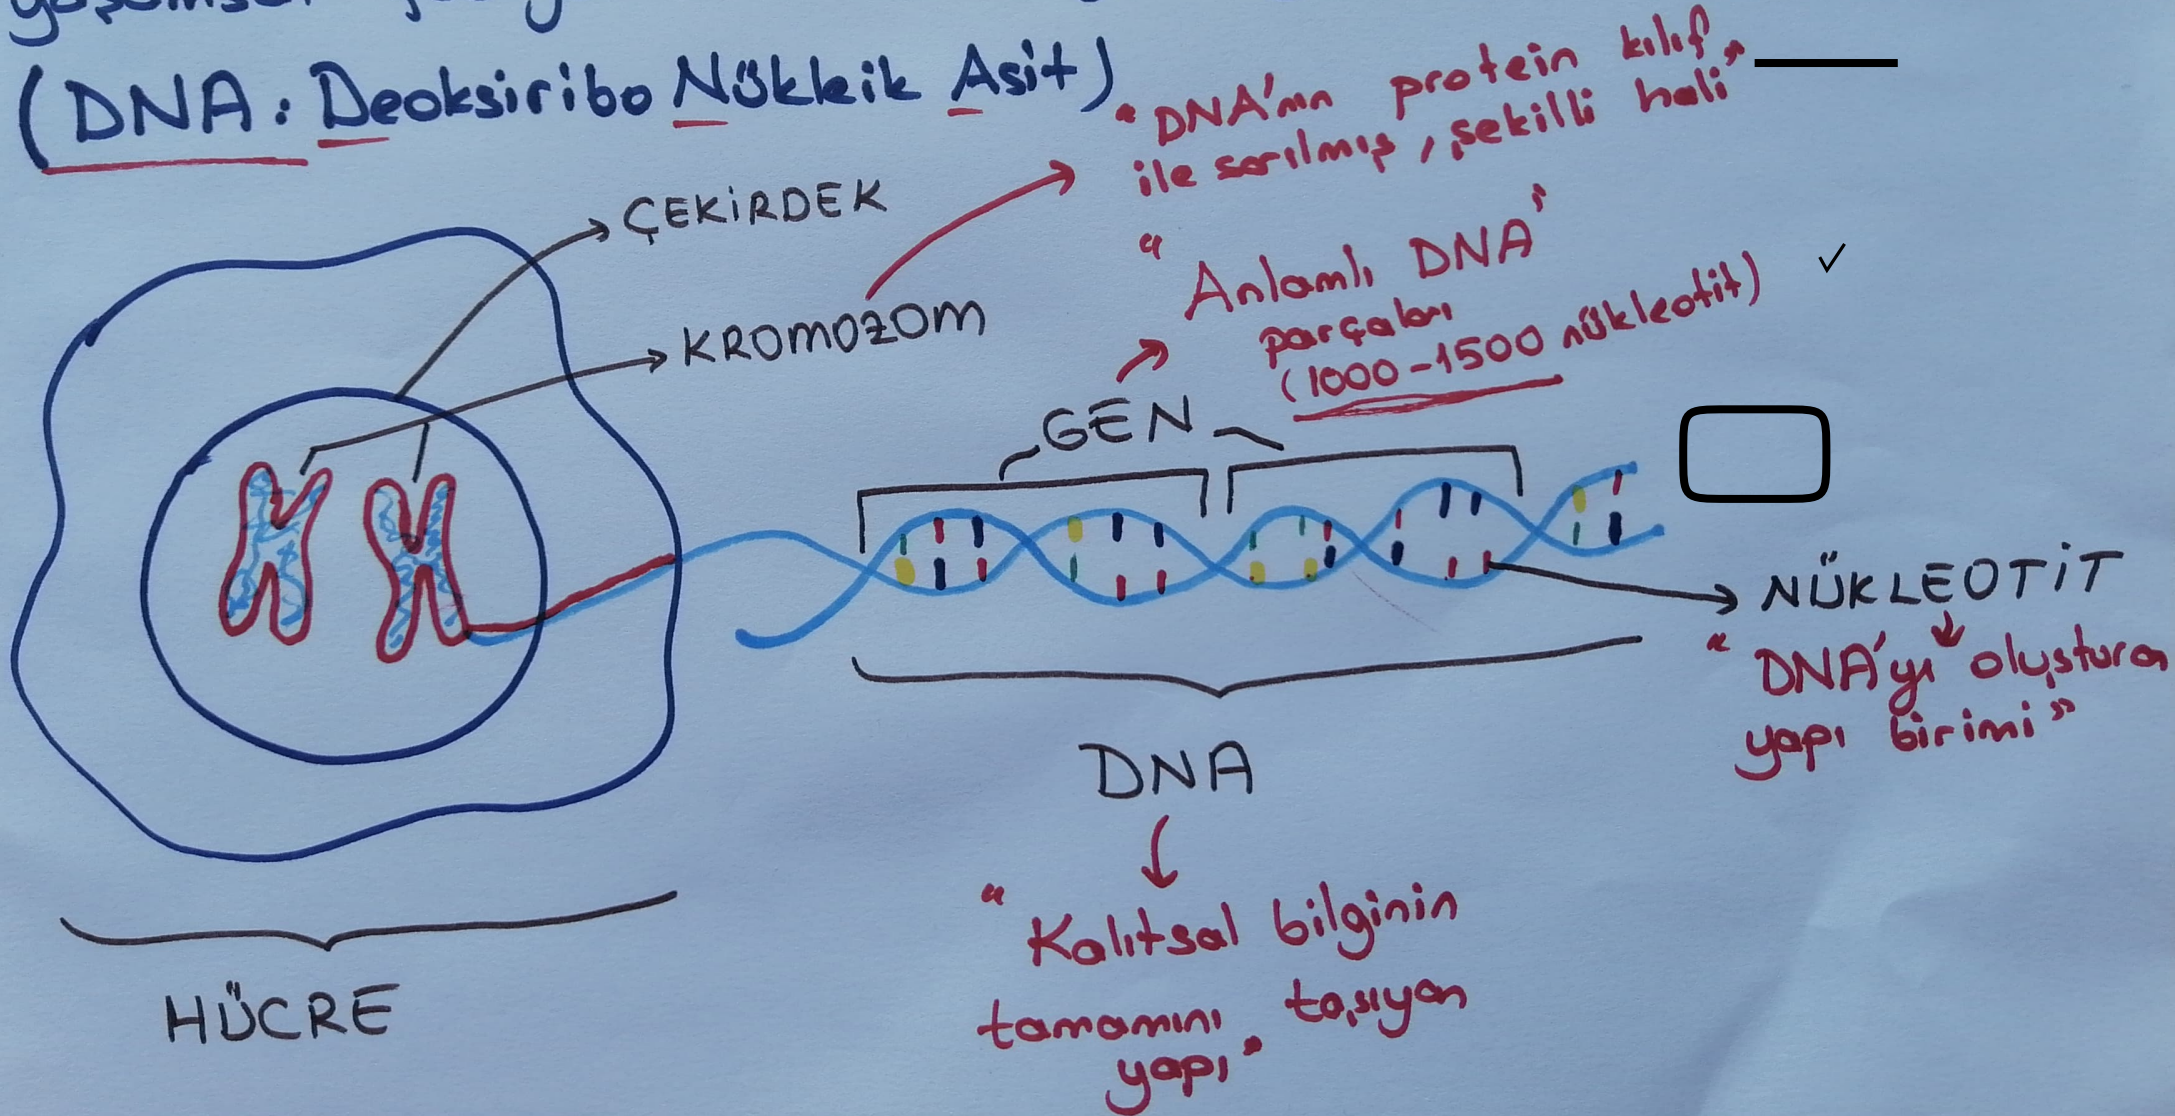 (DNA: Deoksiribo Nükleik Asit)
"DNA'nın protein kılıf
ile sarılmış, şekilli hali"
ÇEKİRDEK
KROMOZOM
"Anlamlı DNA"
parçaları
(1000-1500 nükleotit)
GEN
NÜKLEOTİT
"DNA'yı oluşturan
yapı birimi"
DNA
"Kalıtsal bilginin
tamamını taşıyan
yapı"
HÜCRE